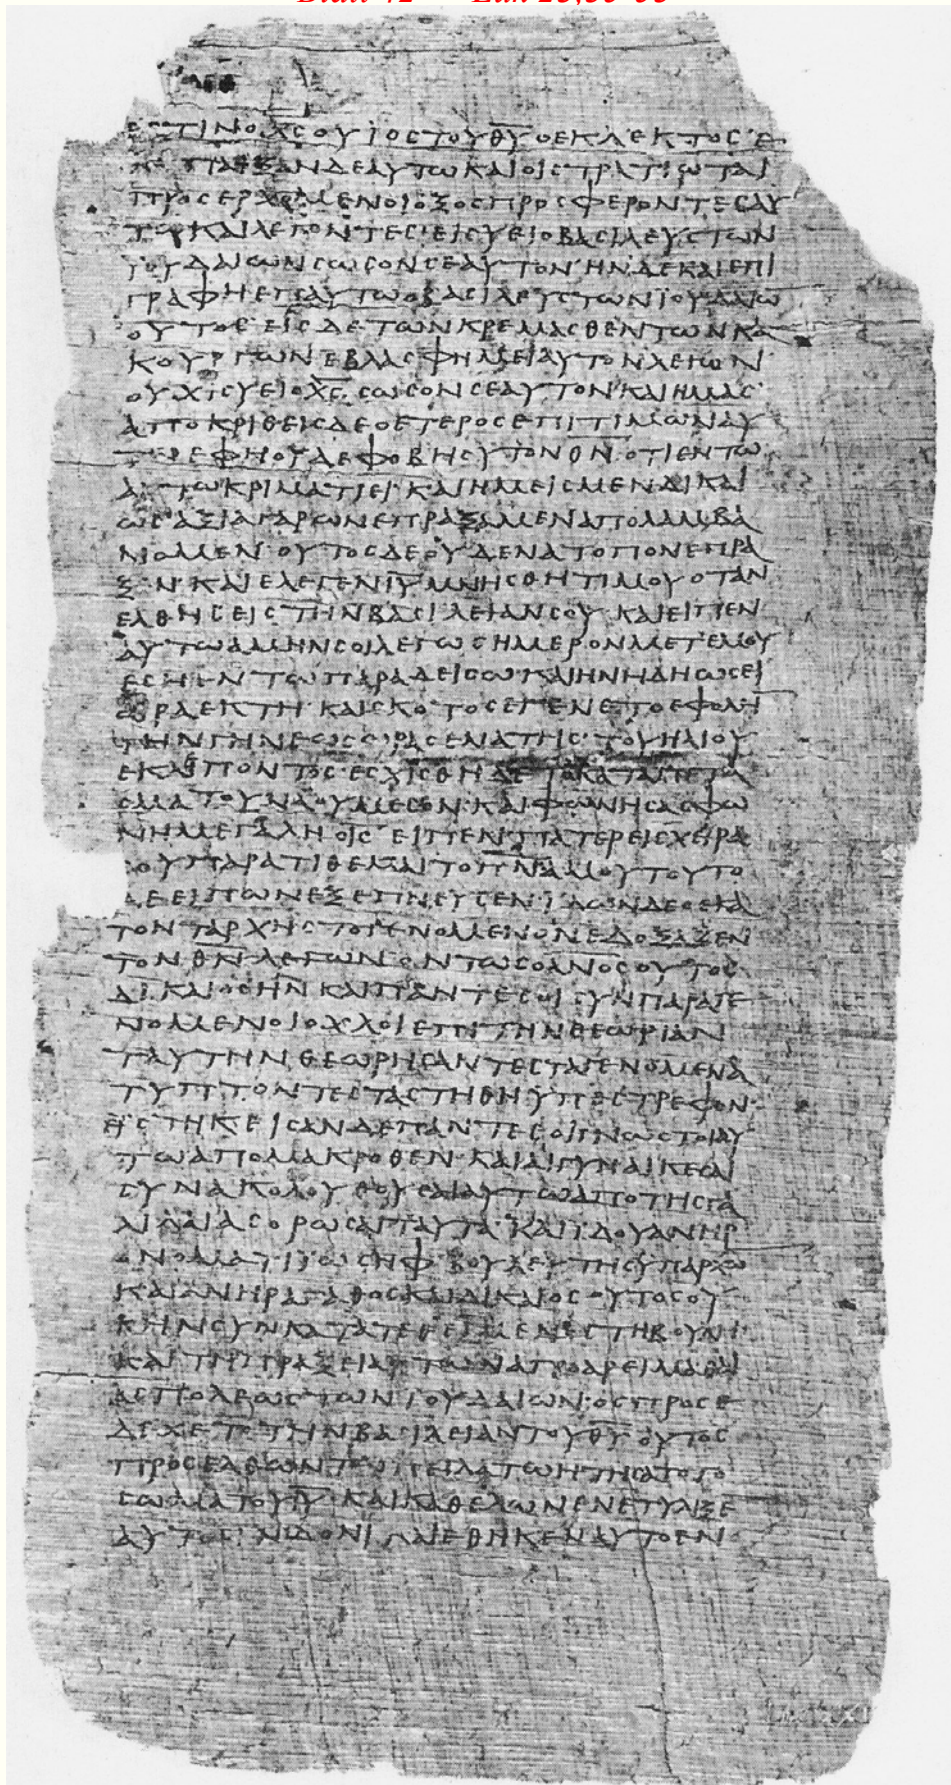 Blatt 42 Luk 23,35-53
ΕΣΤΙΝ Ο ΧΣ Ο ΥΙΟΣ ΤΟΥ ΘΥ Ο ΕΚΛΕΚΤΟΣ Ε
ΔΕ ΑΥΤΩ ΚΑΙ ΟΙ ΣΤΡΑΤΙΩΤΑΙ
ΠΡΟΣΕΡΧΟΜΕΝΟΙ ΟΞΟΣ ΠΡΟΣΦΕΡΟΝΤΕΣ ΑΥ
ΤΩ ΚΑΙ ΛΕΓΟΝΤΕΣ ΕΙ ΣΥ ΕΙ Ο ΒΑΣΙΛΕΥΣ ΤΩΝ
ΙΟΥΔΑΙΩΝ ΣΩΣΟΝ ΣΕΑΥΤΟΝ ΗΝ ΔΕ ΚΑΙ ΕΠΙ
ΓΡΑΦΗ ΕΠ ΑΥΤΩ Ο ΒΑΣΙΛΕΥΣ ΤΩΝ ΙΟΥΔΑΙΩ
ΟΥΤΟΣ ΕΙΣ ΔΕ ΤΩΝ ΚΡΕΜΑΣΘΕΝΤΩΝ ΚΑ
ΚΟΥΡΓΩΝ ΕΒΛΑΣΦΗΜΕΙ ΑΥΤΟΝ ΛΕΓΩΝ
ΟΥΧΙ ΣΥ ΕΙ Ο ΧΣ ΣΩΣΟΝ ΣΕΑΥΤΟΝ ΚΑΙ ΗΜΑΣ
ΑΠΟΚΡΙΘΕΙΣ ΔΕ Ο ΕΤΕΡΟΣ ΕΠΙΤΙΜΩΝ ΑΥ
ΕΦΗ ΟΥΔΕ ΦΟΒΗ ΣΥ ΤΟΝ ΘΝ ΟΤΙ ΕΝ ΤΩ
ΑΥΤΩ ΚΡΙΜΑΤΙ ΕΙ ΚΑΙ ΗΜΕΙΣ ΜΕΝ ΔΙΚΑΙ
ΩΣ ΑΞΙΑ ΓΑΡ ΩΝ ΕΠΡΑΞΑΜΕΝ ΑΠΟΛΑΜΒΑ
ΝΟΜΕΝ ΟΥΤΟΣ ΔΕ ΟΥΔΕΝ ΑΤΟΠΟΝ ΕΠΡΑ
ΞΕΝ ΚΑΙ ΕΛΕΓΕΝ ΙΥ ΜΝΗΣΘΗΤΙ ΜΟΥ ΟΤΑΝ
ΕΛΘΗΣ ΕΙΣ ΤΗΝ ΒΑΣΙΛΕΙΑΝ ΣΟΥ ΚΑΙ ΕΙΠΕΝ
ΑΥΤΩ ΑΜΗΝ ΣΟΙ ΛΕΓΩ ΣΗΜΕΡΟΝ ΜΕΤ ΕΜΟΥ
ΕΣΗ ΕΝ ΤΩ ΠΑΡΑΔΕΙΣΩ ΚΑΙ ΗΝ ΗΔΗ ΩΣΕΙ
ΩΡΑ ΕΚΤΗ ΚΑΙ ΣΚΟΤΟΣ ΕΓΕΝΕΤΟ ΕΦ ΟΛΗ
ΤΗΝ ΓΗΝ ΕΩΣ ΩΡΑΣ ΕΝΑΤΗΣ ΤΟΥ ΗΛΙΟΥ
ΕΣΧΙΣΘΗ ΔΕ ΤΟ ΚΑΤΑΠΕΤΑ
ΣΜΑ ΤΟΥ ΝΑΟΥ ΜΕΣΟΝ ΚΑΙ ΦΩΝΗΣΑΣ ΦΩ
ΝΗ ΜΕΓΑΛΗ Ο ΙΣ ΕΙΠΕΝ ΠΑΤΕΡ ΕΙΣ ΧΕΙΡΑ
ΣΟΥ ΠΑΡΑΤΙΘΕΜΑΙ ΤΟ ΠΝΑ ΜΟΥ ΤΟΥΤΟ
ΔΕ ΕΙΠΩΝ ΕΞΕΠΝΕΥΣΕΝ ΙΔΩΝ ΔΕ Ο ΕΚΑ
ΤΟΝΤΑΡΧΗΣ ΤΟ ΓΕΝΟΜΕΝΟΝ ΕΔΟΞΑΖΕΝ
ΤΟΝ ΘΝ ΛΕΓΩΝ ΟΝΤΩΣ Ο ΑΝΟΣ ΟΥΤΟΣ
ΔΙΚΑΙΟΣ ΗΝ ΚΑΙ ΠΑΝΤΕΣ ΟΙ ΣΥΝΠΑΡΑΓΕ
ΝΟΜΕΝΟΙ ΟΧΛΟΙ ΕΠΙ ΤΗΝ ΘΕΩΡΙΑΝ
ΤΑΥΤΗΝ ΘΕΩΡΗΣΑΝΤΕΣ ΤΑ ΓΕΝΟΜΕΝΑ
ΤΥΠΤΟΝΤΕΣ ΤΑ ΣΤΗΘΗ ΥΠΕΣΤΡΕΦΟΝ
ΕΙΣΤΗΚΕΙΣΑΝ ΔΕ ΠΑΝΤΕΣ ΟΙ ΓΝΩΣΤΟΙ ΑΥ
ΤΩ ΑΠΟ ΜΑΚΡΟΘΕΝ ΚΑΙ ΑΙ ΓΥΝΑΙΚΕΣ ΑΙ
ΣΥΝΑΚΟΛΟΥΘΟΥΣΑΙ ΑΥΤΩ ΑΠΟ ΤΗΣ ΓΑ
ΛΙΛΑΙΑΣ ΟΡΩΣΑΙ ΤΑΥΤΑ ΚΑΙ ΙΔΟΥ ΑΝΗΡ
ΟΝΟΜΑΤΙ ΙΩΣΗΦ ΒΟΥΛΕΥΤΗΣ ΥΠΑΡΧΩ
ΚΑΙ ΑΝΗΡ ΑΓΑΘΟΣ ΚΑΙ ΔΙΚΑΙΟΣ ΟΥΤΟΣ ΟΥ
Κ ΗΝ ΣΥΝΚΑΤΑΤΕΘΕΙΜΕΝΟΣ ΤΗ ΒΟΥΛΗ
ΚΑΙ ΤΗ ΠΡΑΞΕΙ ΑΥΤΩΝ ΑΠΟ ΑΡΕΙΜΑΘΑΙ
ΑΣ ΠΟΛΕΩΣ ΤΩΝ ΙΟΥΔΑΙΩΝ ΟΣ ΠΡΟΣΕ
ΔΕΧΕΤΟ ΤΗΝ ΒΑΣΙΛΕΙΑΝ ΤΟΥ ΘΥ ΟΥΤΟΣ
ΠΡΟΣΕΛΘΩΝ ΤΩ ΠΕΙΛΑΤΩ ΗΤΗΣΑΤΟ ΤΟ
ΣΩΜΑ ΤΟΥ ΙΥ ΚΑΙ ΚΑΘΕΛΩΝ ΕΝΕΤΥΛΙΞΕ
ΑΥΤΟ ΣΙΝΔΟΝΙ ΚΑΙ ΕΘΗΚΕΝ ΑΥΤΟ ΕΝ